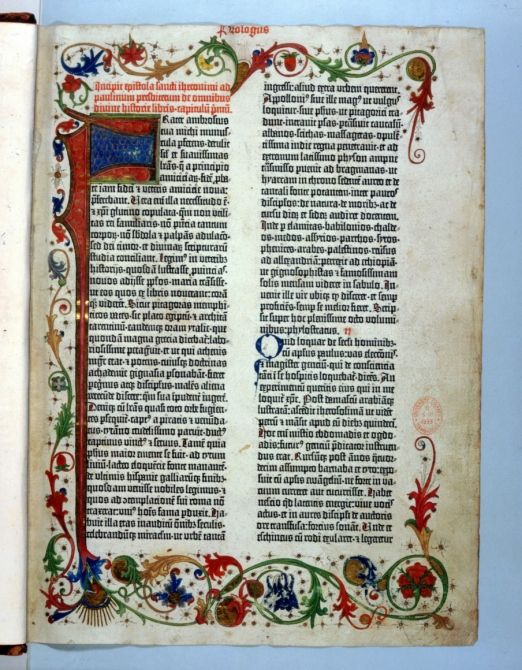 Prologus
Incipit epistola sancti iheronimi ad
paulinum presbiterum de omnibus
divine historie libris· capitulū pmū.
Frater ambrosius
tua michi munus-
cula pferens· detulit
sil et suavissimas
lrās· q a principio
amiciciaꝝ· fidē pba-
te iam fidei ⁊ veteris amicicie nova:
pferebant. Vera enī illa necessitudo ē·
⁊ xpi glutino copulata· quā non utili-
tas rei familiaris· nō pntia tantum
corpoꝝ· nō sbdola ⁊ palpās adulacō·
sed dei timor· et divinaꝝ scripturarū
studia conciliant. Legim⁹ in veterib⁹
historijs· quosdā lustrasse puīcias·
novos adijsse pplos· maria trāsisse·
ut eos quos ex libris noverant: corā
qꝫ viderēt. Sicut pitagoras memphi-
ticos vates· sic plato egiptū ⁊ architā
tarentinū· eandemqꝫ oram ytalie· que
quondā magna grecia dicebat̄: labo-
riosissime peragravit· et ut qui athenis
mgr̄ erat· ⁊ potens· cuiusqꝫ doctrinas
achademie gignasia psonabāt· fieret
pegrinus atqꝫ discipulus· malēs aliena
verecunde discere:
Deniqꝫ cū lrās quasi toto orbe fugien-
tes psequit̄· capt⁹ a piratis ⁊ venūda-
tus· tyrāno crudelissimo paruit· duct⁹
captivus vinct⁹ ⁊ servus. Tamē quia
phus maior emente se fuit· ad tytum
liviū· lacteo eloquētie fonte manantē·
de ultimis hispanie galliarūqꝫ finib⁹·
quosdam venisse nobiles legimus·
quos ad cōtemplationē sui roma nō
traxerat: uni⁹ hois fama pduxit. Ha-
buit illa etas inauditū oīb⁹ seculis·
celebrandūqꝫ miraculū· ut urbē tantā
ingressi: aliud extra urbem quererent.
Appolloni⁹ sive ille mag⁹ ut vulgus
loquitur· sive phus· ut pitagorici tra-
dunt· intravit psas· ptrāsivit caucasū·
albanos· scithas· massagetas· opulē-
tissima indie regna penetravit: et ad
extremum latissimo physon amne
trāsmisso puenit ad bragmanas· ut
hyarcam in throno sedentē aureo· et de
tantali fonte potantem· inter paucos
discipulos· de natura· de moribus· ac de
cursu dierū et siderū audiret docentem.
Inde p elamitas· babilonios· chalde-
os· medos· assyrios· parthos· syros·
phenices· arabes· palestinos· reversus
ad alexandriā: perrexit ad ethiopiā·
ut gignosophistas ⁊ famosissimam
solis mensam videret in sabulo. In-
venit ille vir ubiqꝫ qd disceret: et semp
proficiēs· semp se melior fieret. Scrip-
sit super hoc plenissime octo volumi-
nibus: phylostratus.
Quid loquar de secli hominib⁹·
cū apostolus paulus: vas electionis·
⁊ magister gentiū· qui de conscientia
tāti ī se hospitis loquebat̄· dicēs. An
experimentū queritis eius qui in me
loquit̄ xpc. Post damascū arabiāqꝫ
lustratā: ascēdit iherosolimā ut videt
petrū ⁊ māsit apud eū dieb⁹ quindecī.
Hoc enī misterio ebdomadis et ogdo-
adis: futur⁹ gentiū pdicator instruen-
dus erat. Rursūqꝫ post ānos q̄tuor-
decim assumpto barnaba et tyto: expo-
suit cū apostolis euāgeliū· ne forte in va-
cuum curreret aut cucurrisset. Habet
nescio qd latentis energie: vive vocis
actus· et in aures discipuli de auctoris
ore transfusa: fortius sonat. Unde et
eschineus cū rodi exularet· ⁊ legeretur